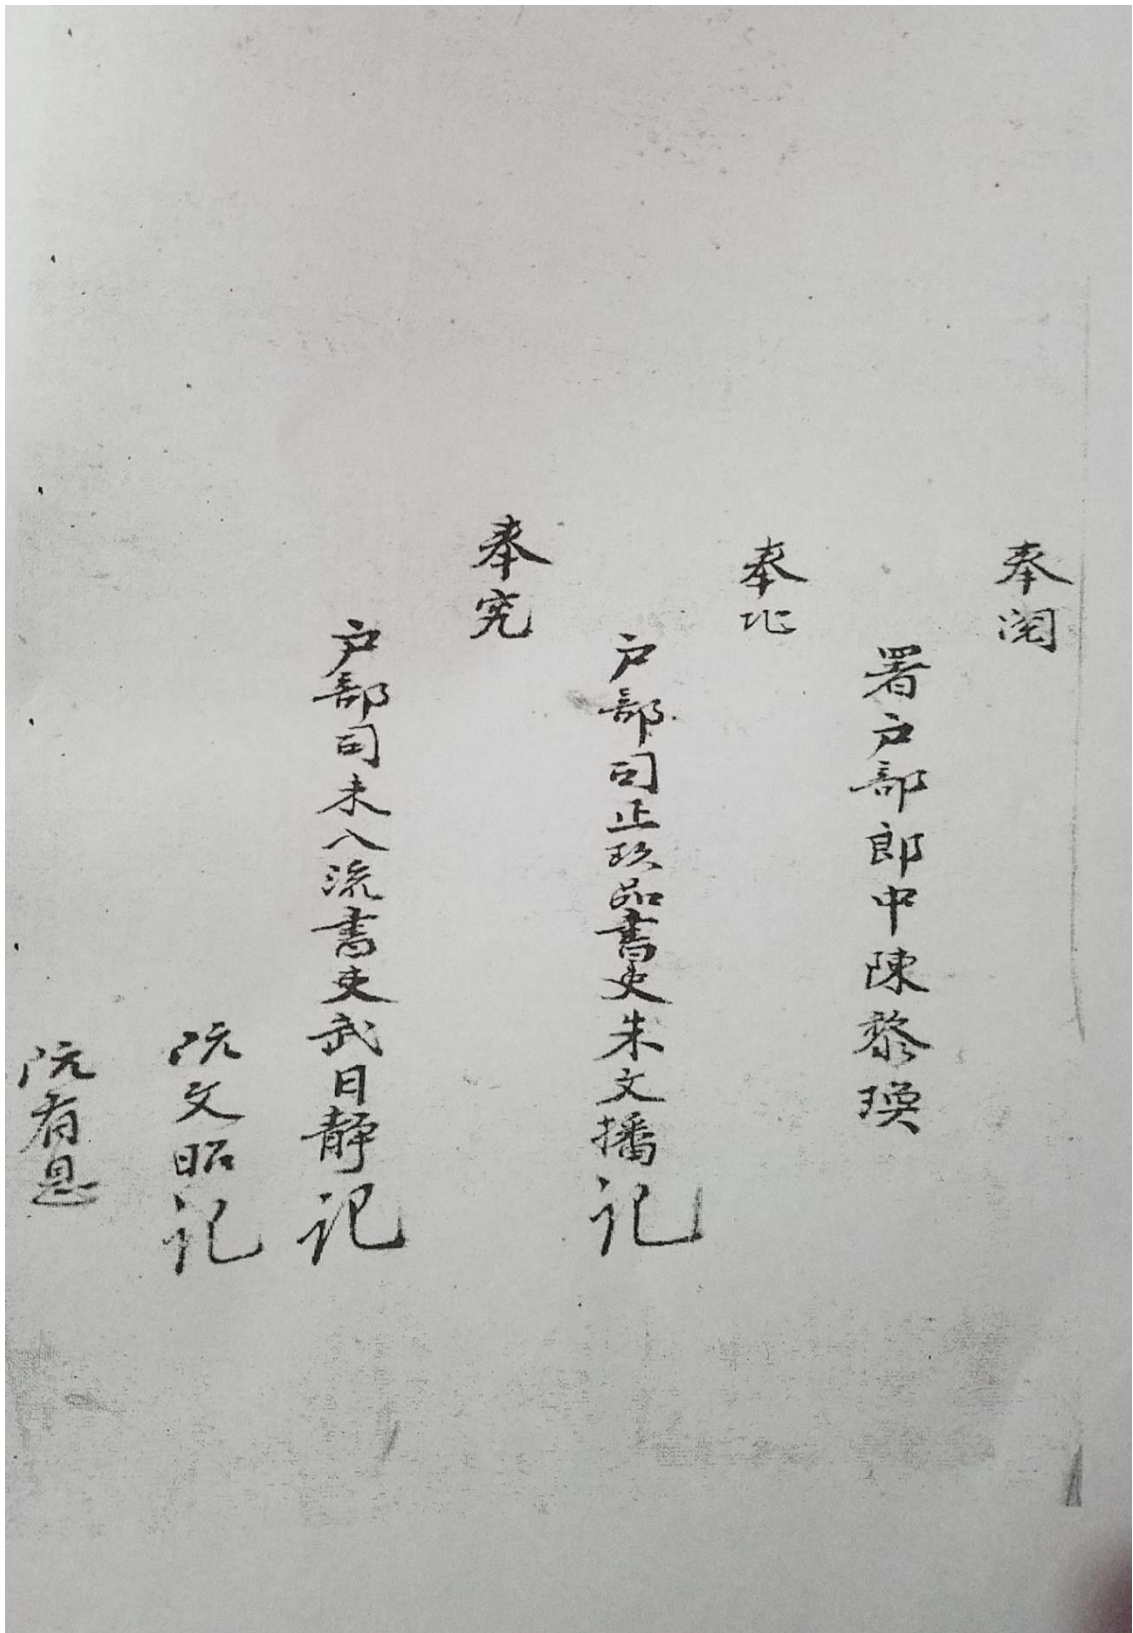 奉閱
署户部郎中陳黎瑍
奉兆
户部司正玖品書吏朱文播記
奉究
户部司未入流書吏武曰靜記
阮文昭記
阮有恩